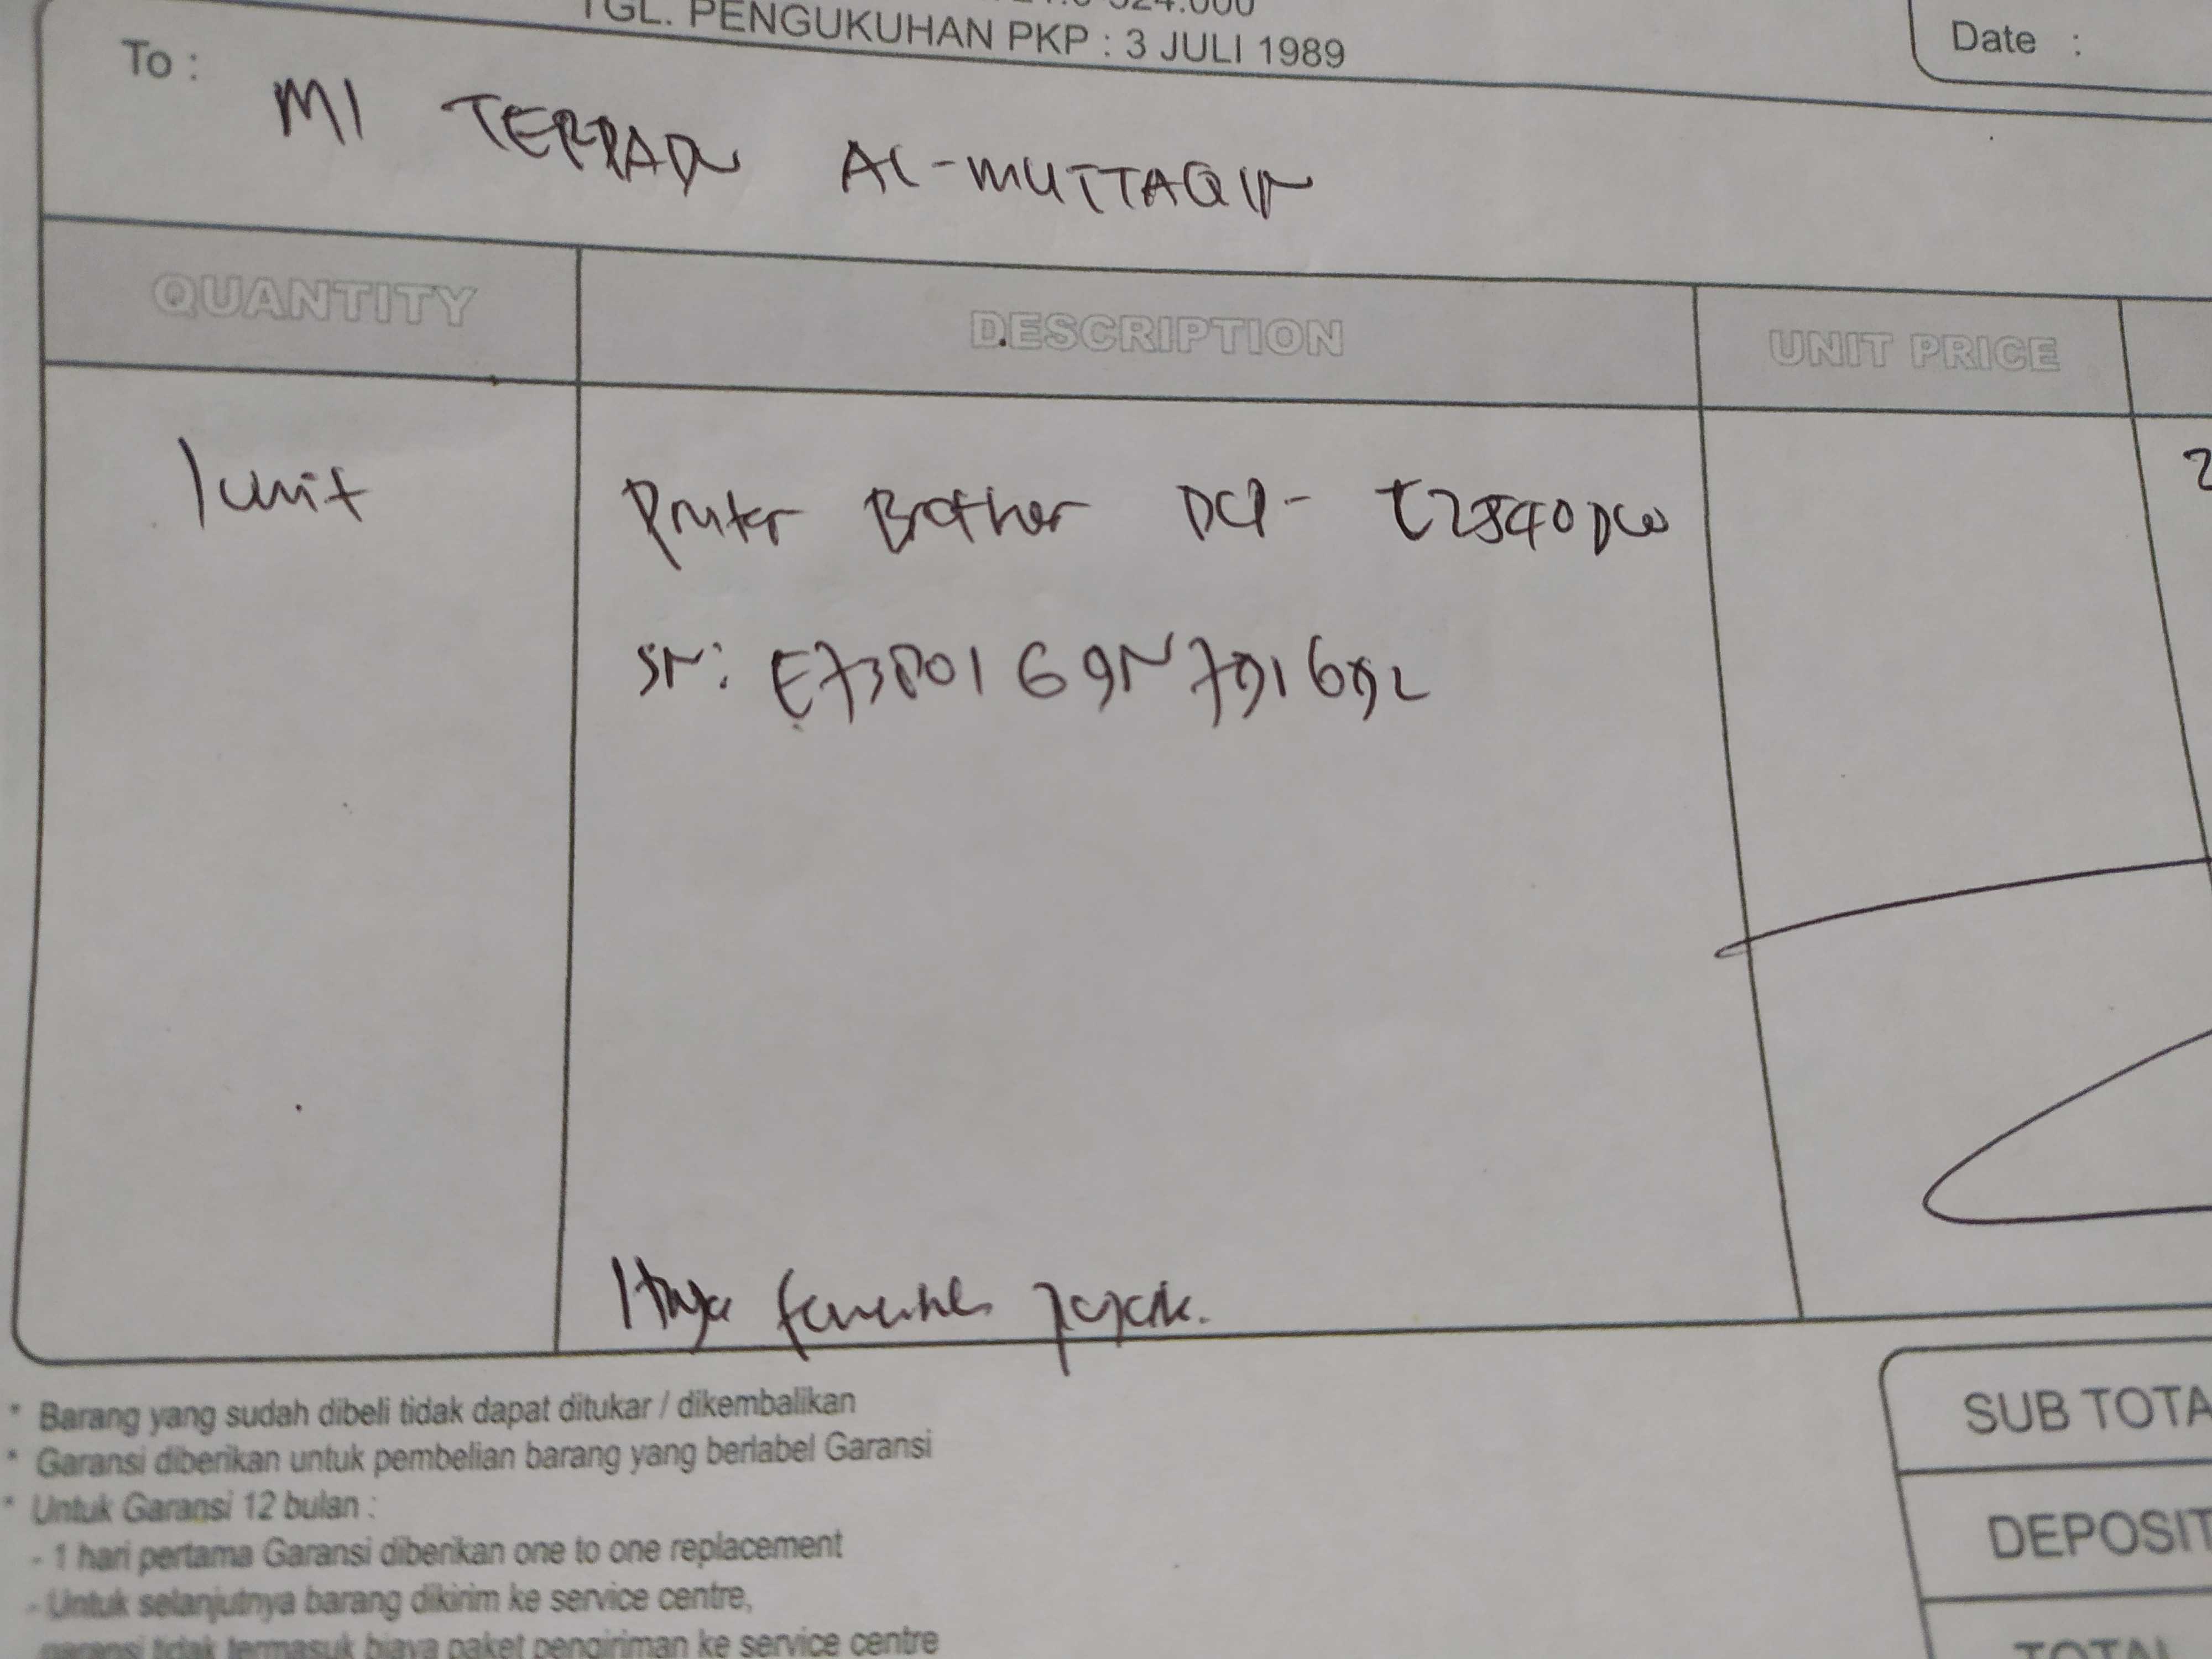 TGL. PENGUKUHAN PKP : 3 JULI 1989
Date :
To :
MI TERPADU AL-MUTTAQIN
QUANTITY DESCRIPTION UNIT PRICE
1 unit Printer Brother DCP- L2540DW
SN: E73801G9N791692
Harga termasuk pajak.
* Barang yang sudah dibeli tidak dapat ditukar / dikembalikan
* Garansi diberikan untuk pembelian barang yang berlabel Garansi
* Untuk Garansi 12 bulan :
- 1 hari pertama Garansi diberikan one to one replacement
- Untuk selanjutnya barang dikirim ke service centre,
garansi tidak termasuk biaya paket pengiriman ke service centre
SUB TOTA
DEPOSIT
TOTAL